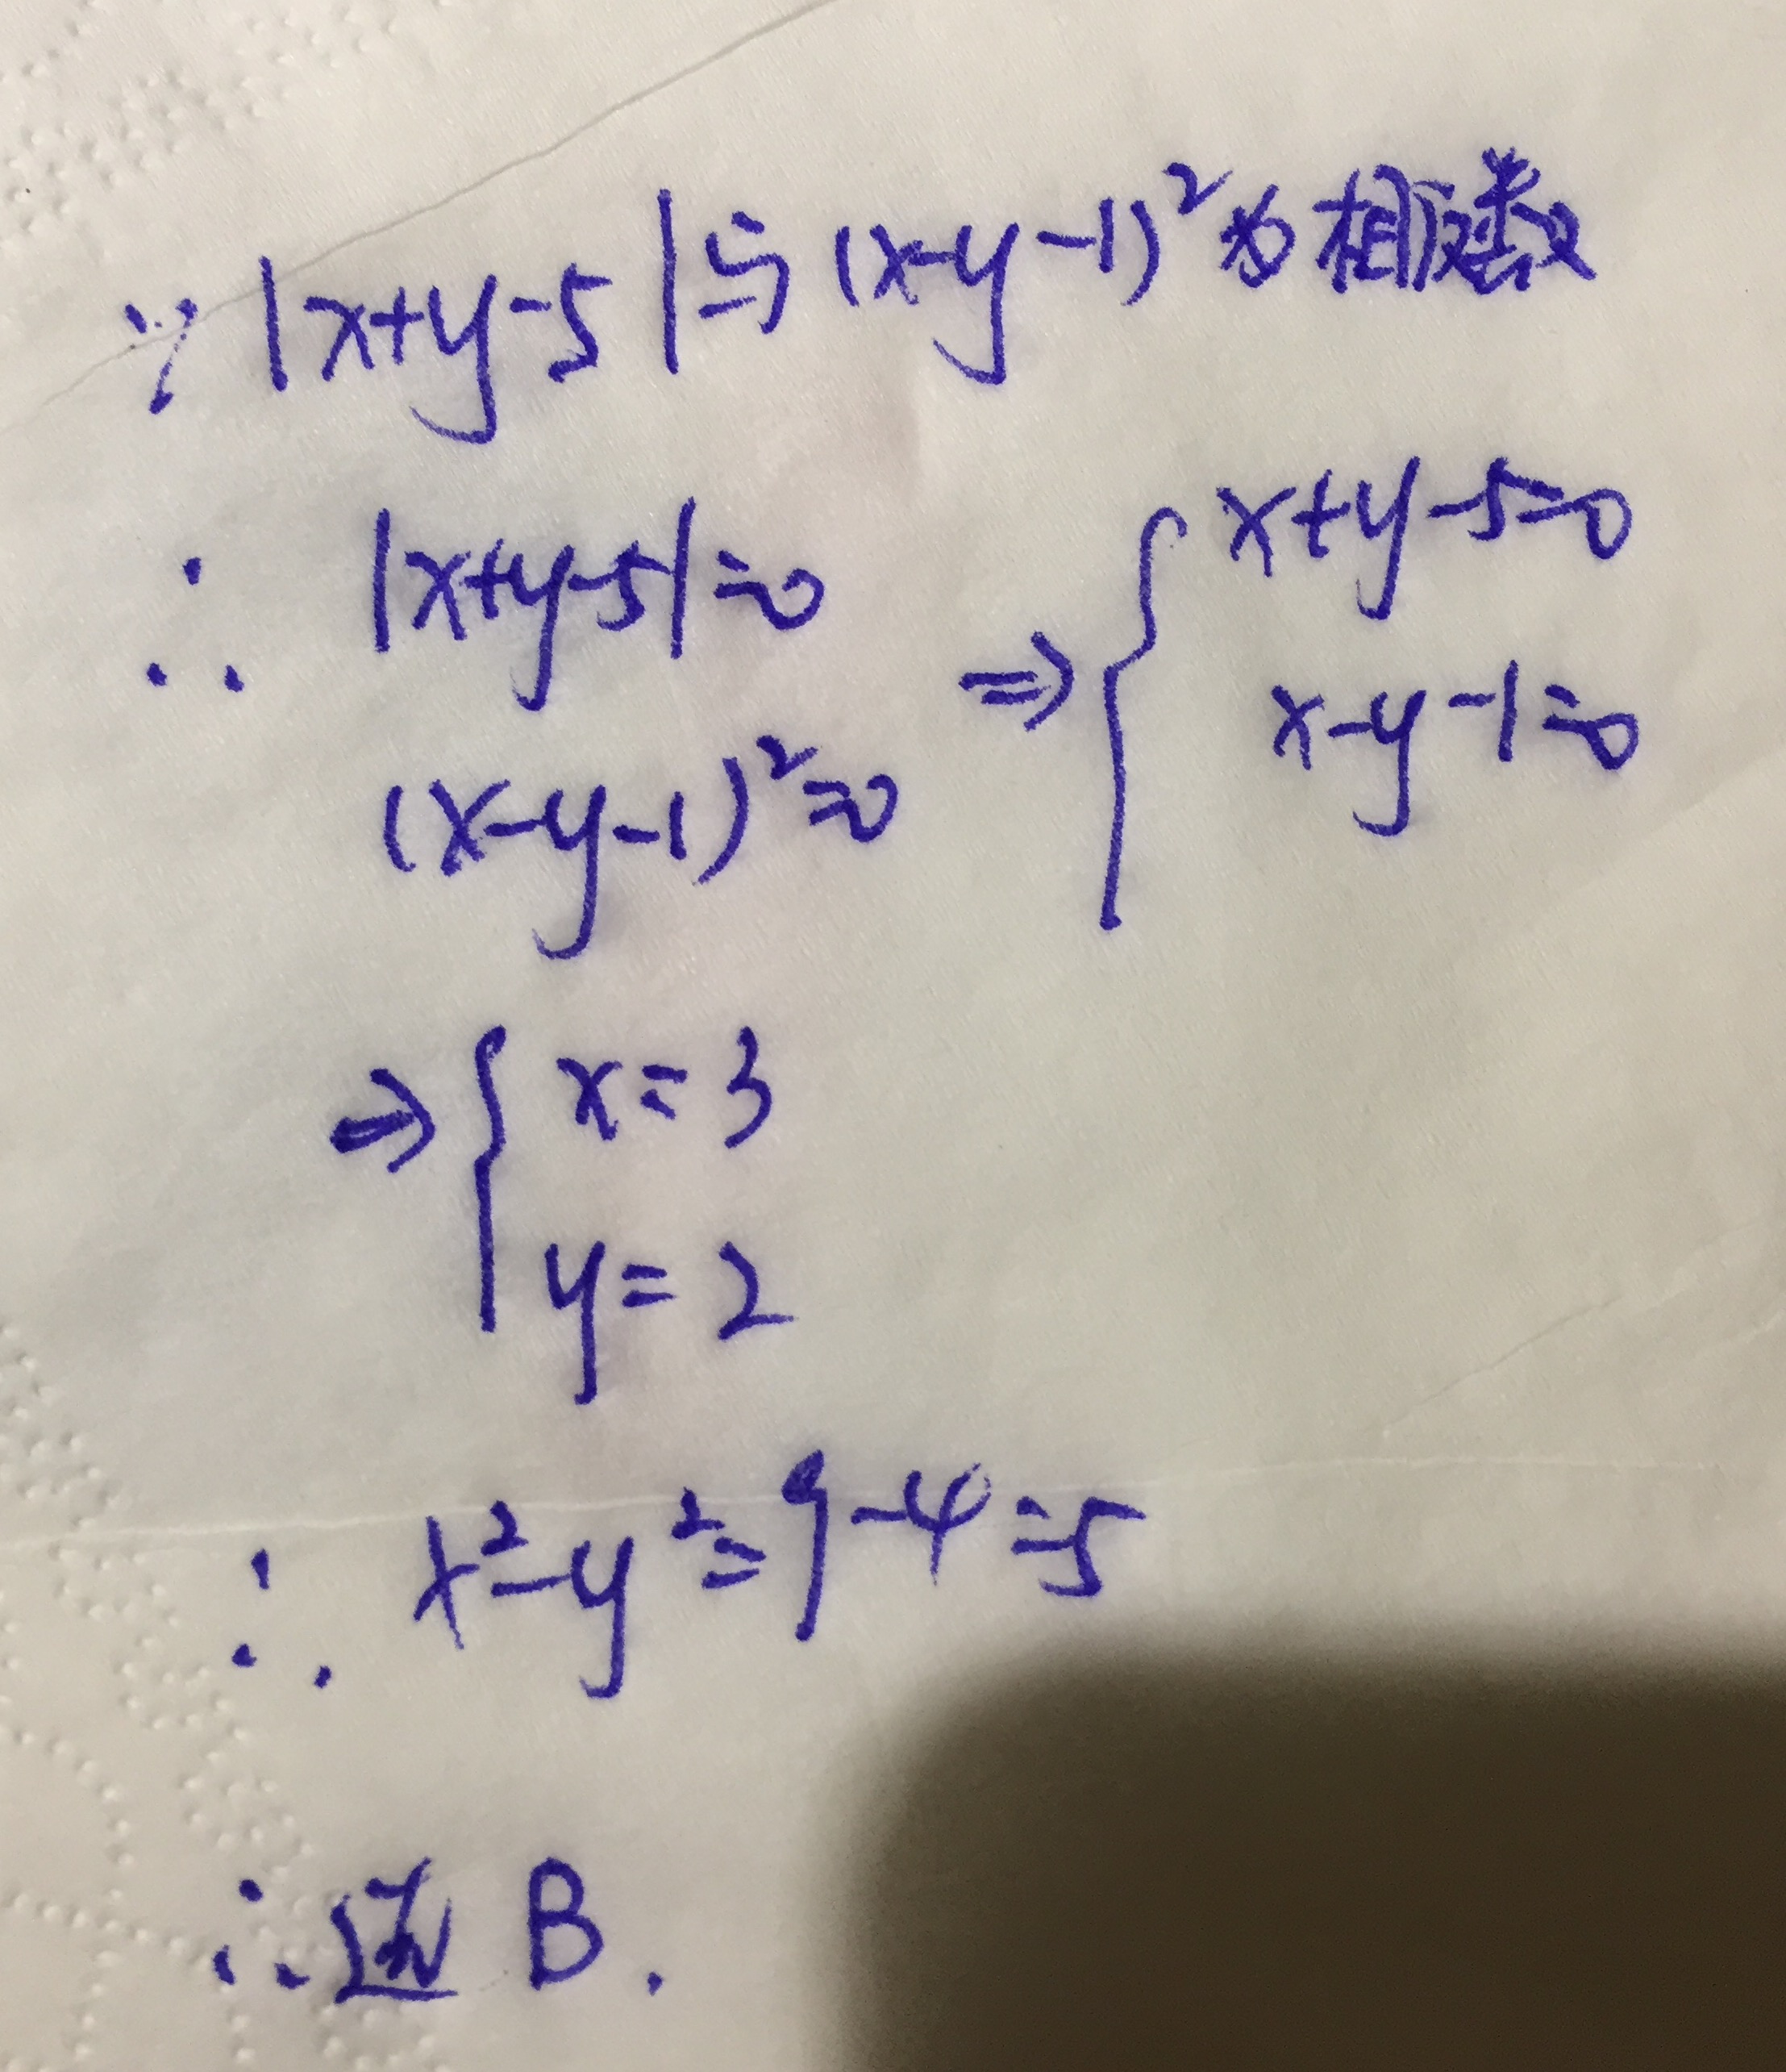 ∵ |x+y-5|与(x-y-1)²为相反数
∴ |x+y-5|=0
(x-y-1)²=0
⇒ { x+y-5=0
x-y-1=0
⇒ { x=3
y=2
∴ x²-y²=9-4=5
∴选 B.